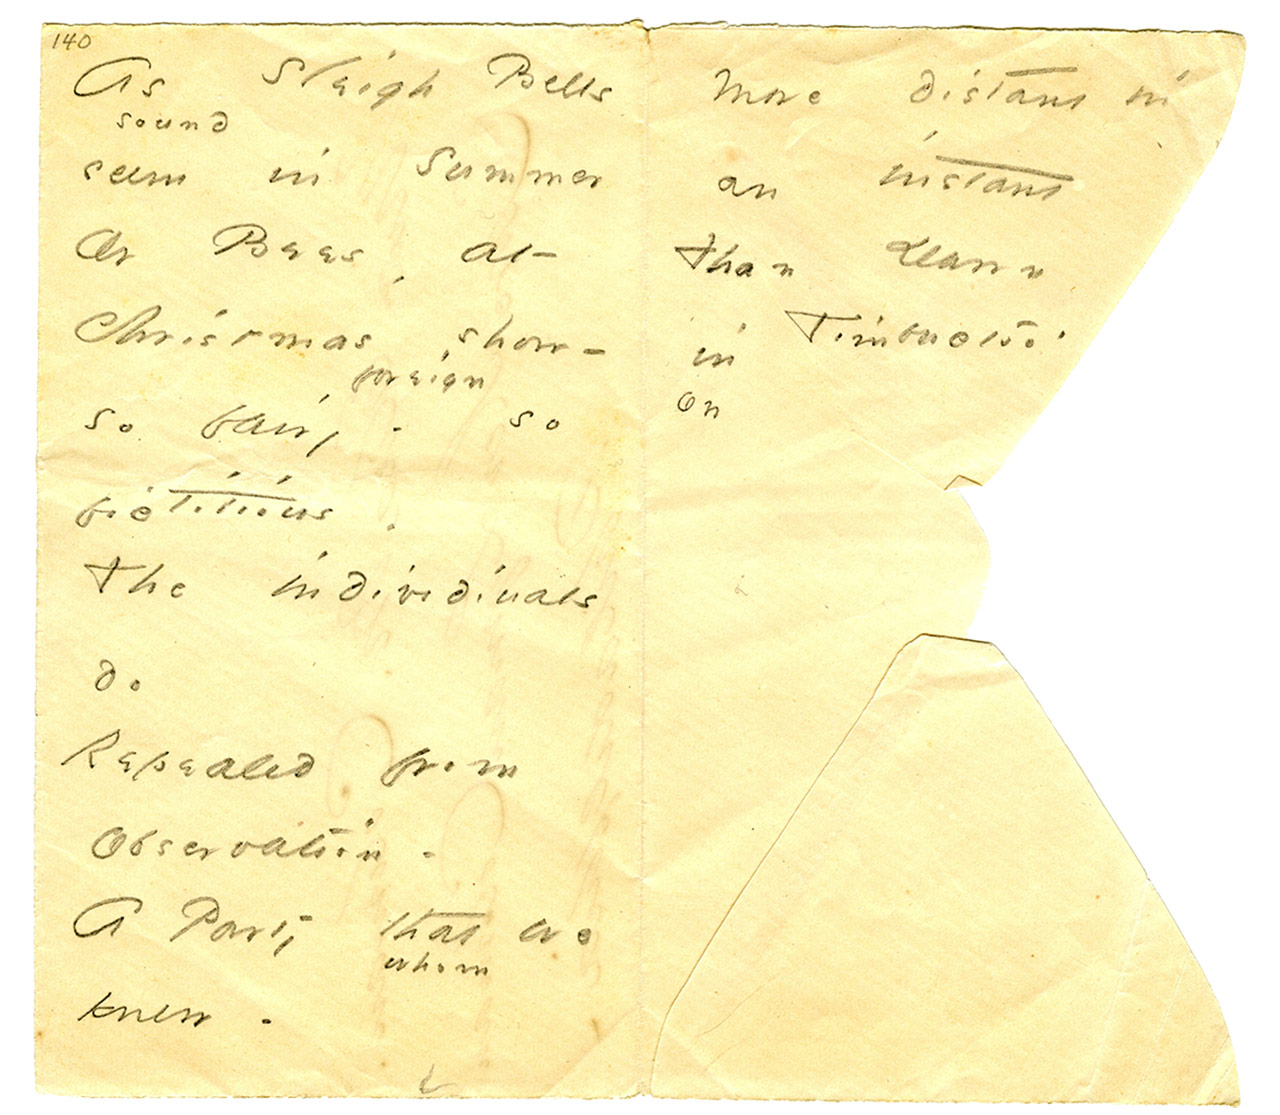 140
As Sleigh Bells
sound
seem in Summer
Or Bees, at
Christmas, show -
foreign
so fair, - so
fictitious.
the individuals
do
Repealed from
Observation -
A Party that we
whom
knew -
More distant in
an instant
than Dawn
in Timbuctoo.
on